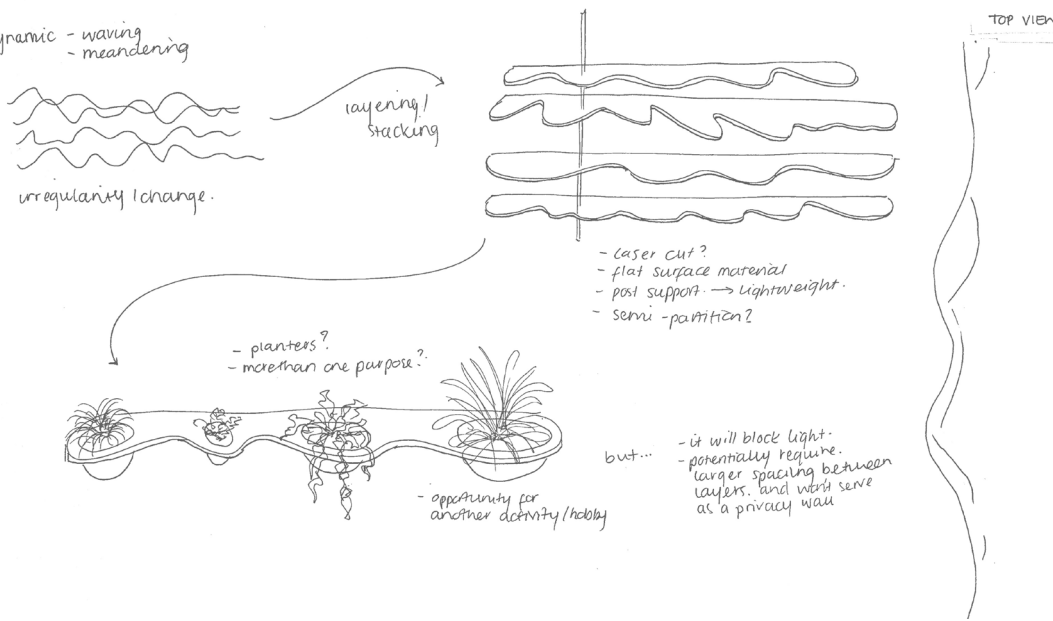 ynamic - waving
- meandering
irregularity / change.
layering /
stacking
TOP VIEW
- laser cut?
- flat surface material
- post support. → lightweight.
- semi-partition?
- planters?
- more than one purpose?
- opportunity for
another activity/hobby
but...
- it will block light.
- potentially require.
larger spacing between
layers. and won't serve
as a privacy wall